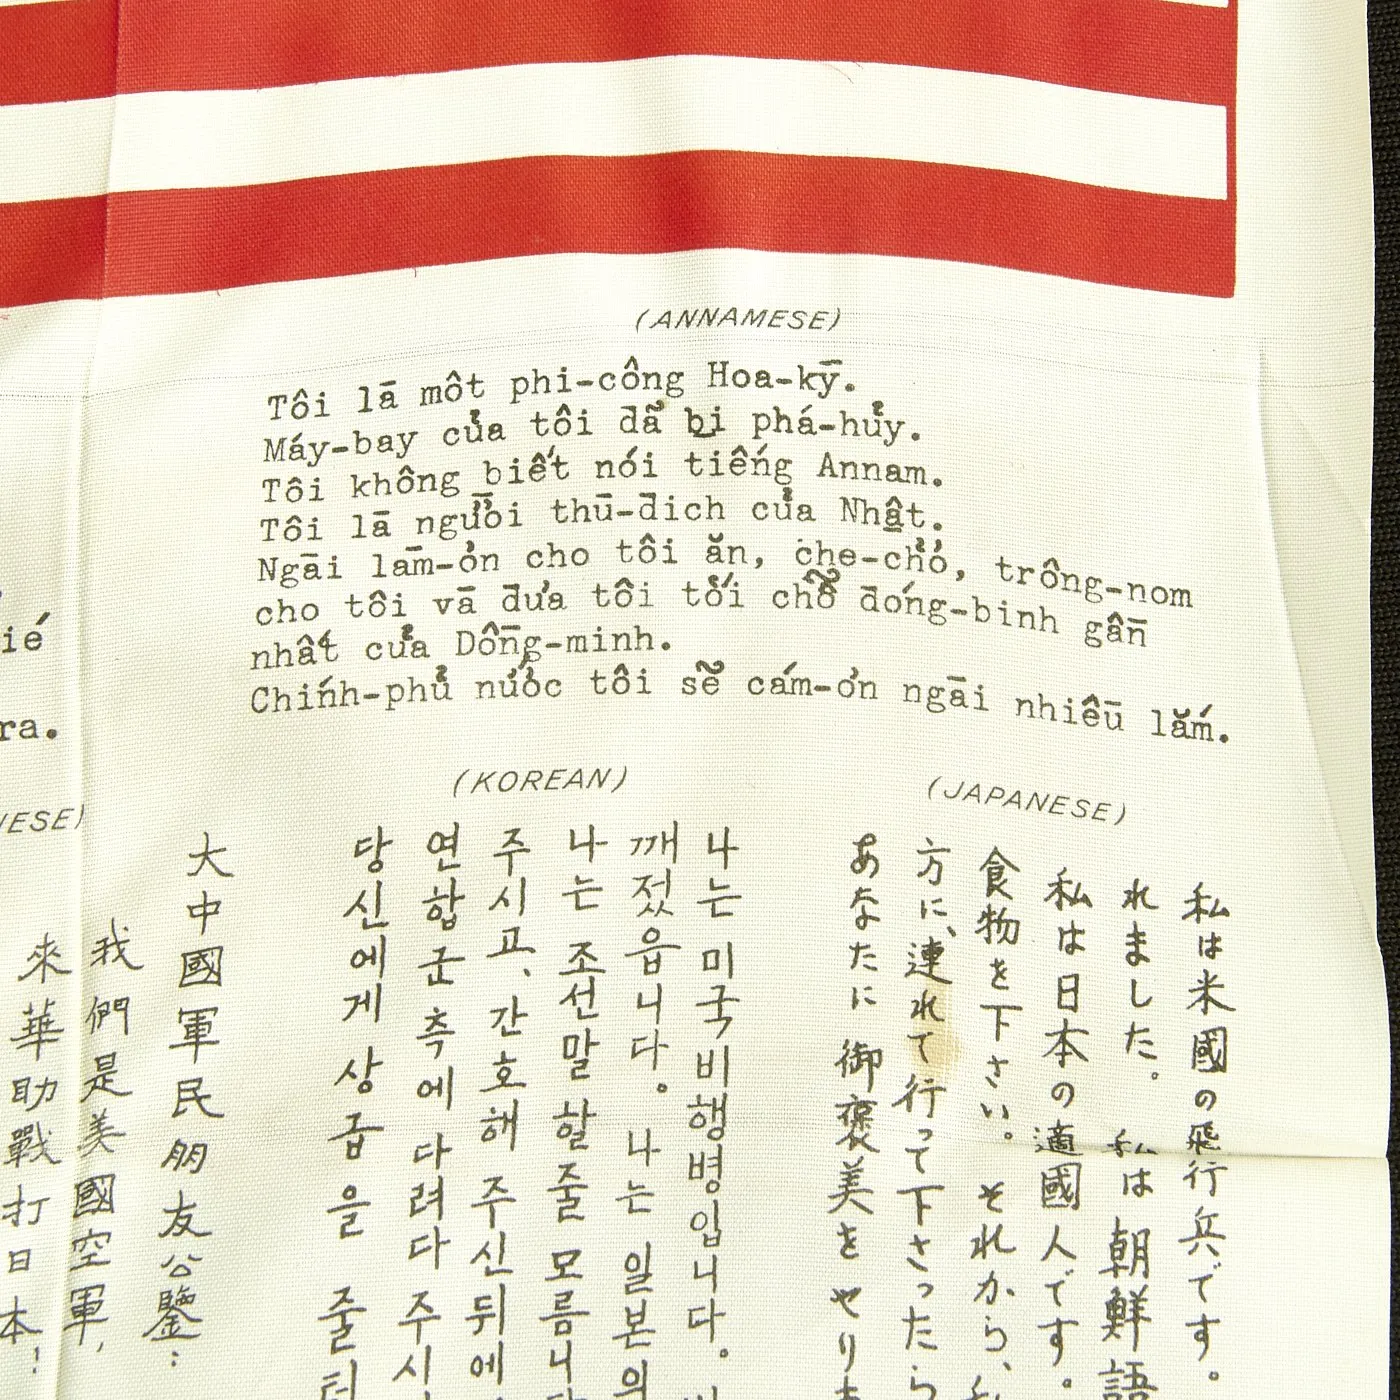 (ANNAMESE)
Tôi lā môt phi-công Hoa-kȳ.
Máy-bay của tôi đẩ bị phá-hủy.
Tôi không biết nói tiếng Annam.
Tôi lā người thū-đich của Nhật.
Ngāi lām-ỏn cho tôi ăn, che-chỏ, trông-nom
cho tôi vā đưa tôi tới chỗ đóng-binh gần
nhất của Dồng-minh.
Chính-phủ nước tôi sẽ cám-ơn ngāi nhiêū lắm.
ié
ra.
(JAPANESE)
私は米國の飛行兵です。
れました。 私は朝鮮語
私は日本の適國人です。
食物を下さい。それから、
方に、連れて行って下さったら
あなたに御褒美をやり
(KOREAN)
나는 미국 비행병입니다.
깨졌읍니다. 나는 일본의
나는 조선말 할줄 모름니
주시고, 간호해 주신뒤에
연합군측에 다려다 주시
당신에게 상급을 줄터
NESE)
大中國軍民朋友公鑒:
我們是美國空軍,
來華助戰打日本!